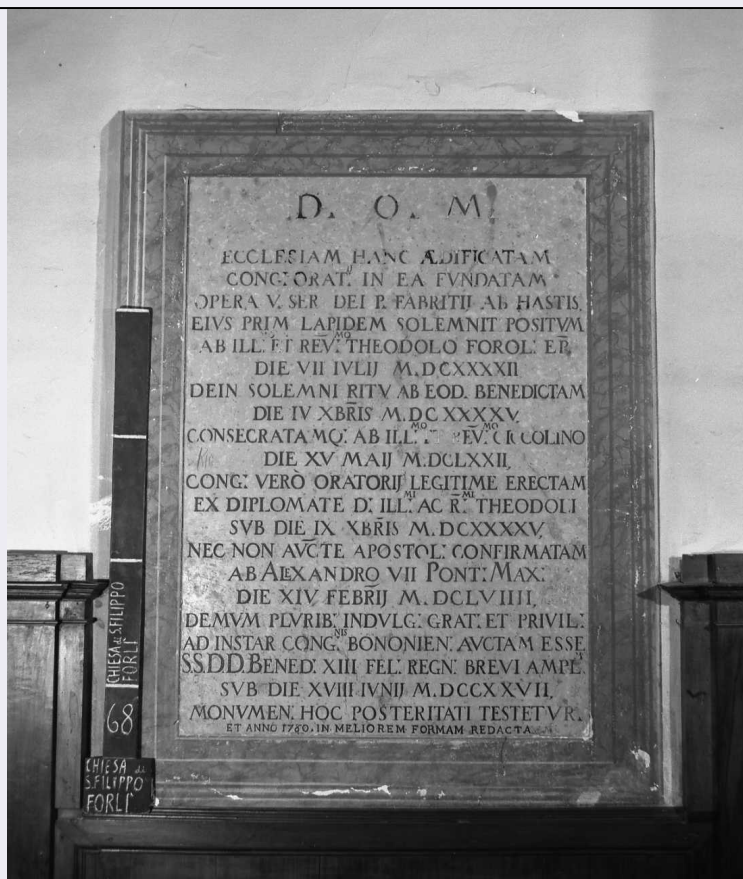 D. O. M.
ECCLESIAM HANC ÆDIFICATAM
CONG: ORAT.IJ IN EA FVNDATAM
OPERA V. SER. DEI P. FABRITII AB HASTIS,
EIVS PRIM LAPIDEM SOLEMNIT POSITVM
AB ILL:MO ET REV:MO THEODOLO FOROL: EP̅.
DIE VII IVLIJ M.DCXXXXII
DEIN SOLEMNI RITV AB EOD. BENEDICTAM
DIE IV XBR̅IS M.DCXXXXV.
CONSECRATAMQ: AB ILL:MO ET REV:MO CICCOLINO
DIE XV MAIJ M.DCLXXII,
CONG: VERÒ ORATORIJ LEGITIME ERECTAM
EX DIPLOMATE D: ILL:MI AC R̅:MI THEODOLI
SVB DIE IX XBR̅IS M.DCXXXXV,
NEC NON AVC̅TE APOSTOL: CONFIRMATAM
AB ALEXANDRO VII PONT: MAX:
DIE XIV FEBR̅IJ M.DCLVIIII,
DEMVM PLVRIB: INDVLG: GRAT: ET PRIVIL:
AD INSTAR CONG:NIS BONONIEN: AVCTAM ESSE
S.S.D.D. BENED: XIII FEL: REGN: BREVI AMPL:
SVB DIE XVIII IVNIJ M.DCCXXVII,
MONVMEN: HOC POSTERITATI TESTETVR.
ET ANNO 1780. IN MELIOREM FORMAM REDACTA
CHIESA di S. FILIPPO
FORLÌ
68
CHIESA di
S. FILIPPO
FORLÌ